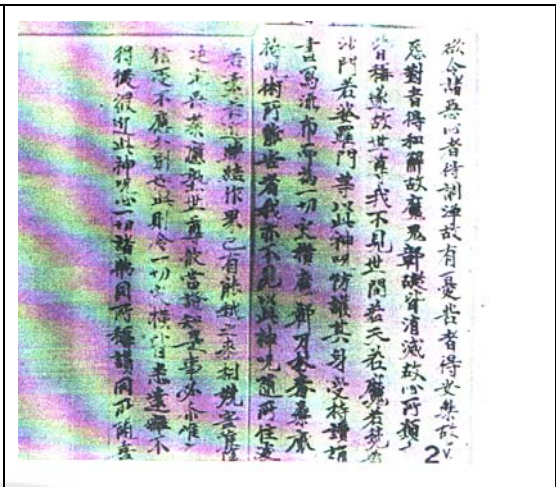 欲令諸惡心者得調淨故有憂苦者得安樂故有
惡對者得和解故魔鬼障礙皆消滅故心所願
皆稱遂故世尊我不見世間若天若魔若梵若
沙門若婆羅門等以此神呪防護其身受持讀誦
書寫流布而為一切灾橫魔障刀杖毒藥厭
術所能害者我亦不見以此神呪隨所住處
結作界已有能越之來相嬈害唯除
定惡業應熟世尊彼當是事必定唯
信受不應分別此則令一切灾橫皆悉遠離不
得侵近此神呪心一切諸佛同所稱讚同所隨喜
2